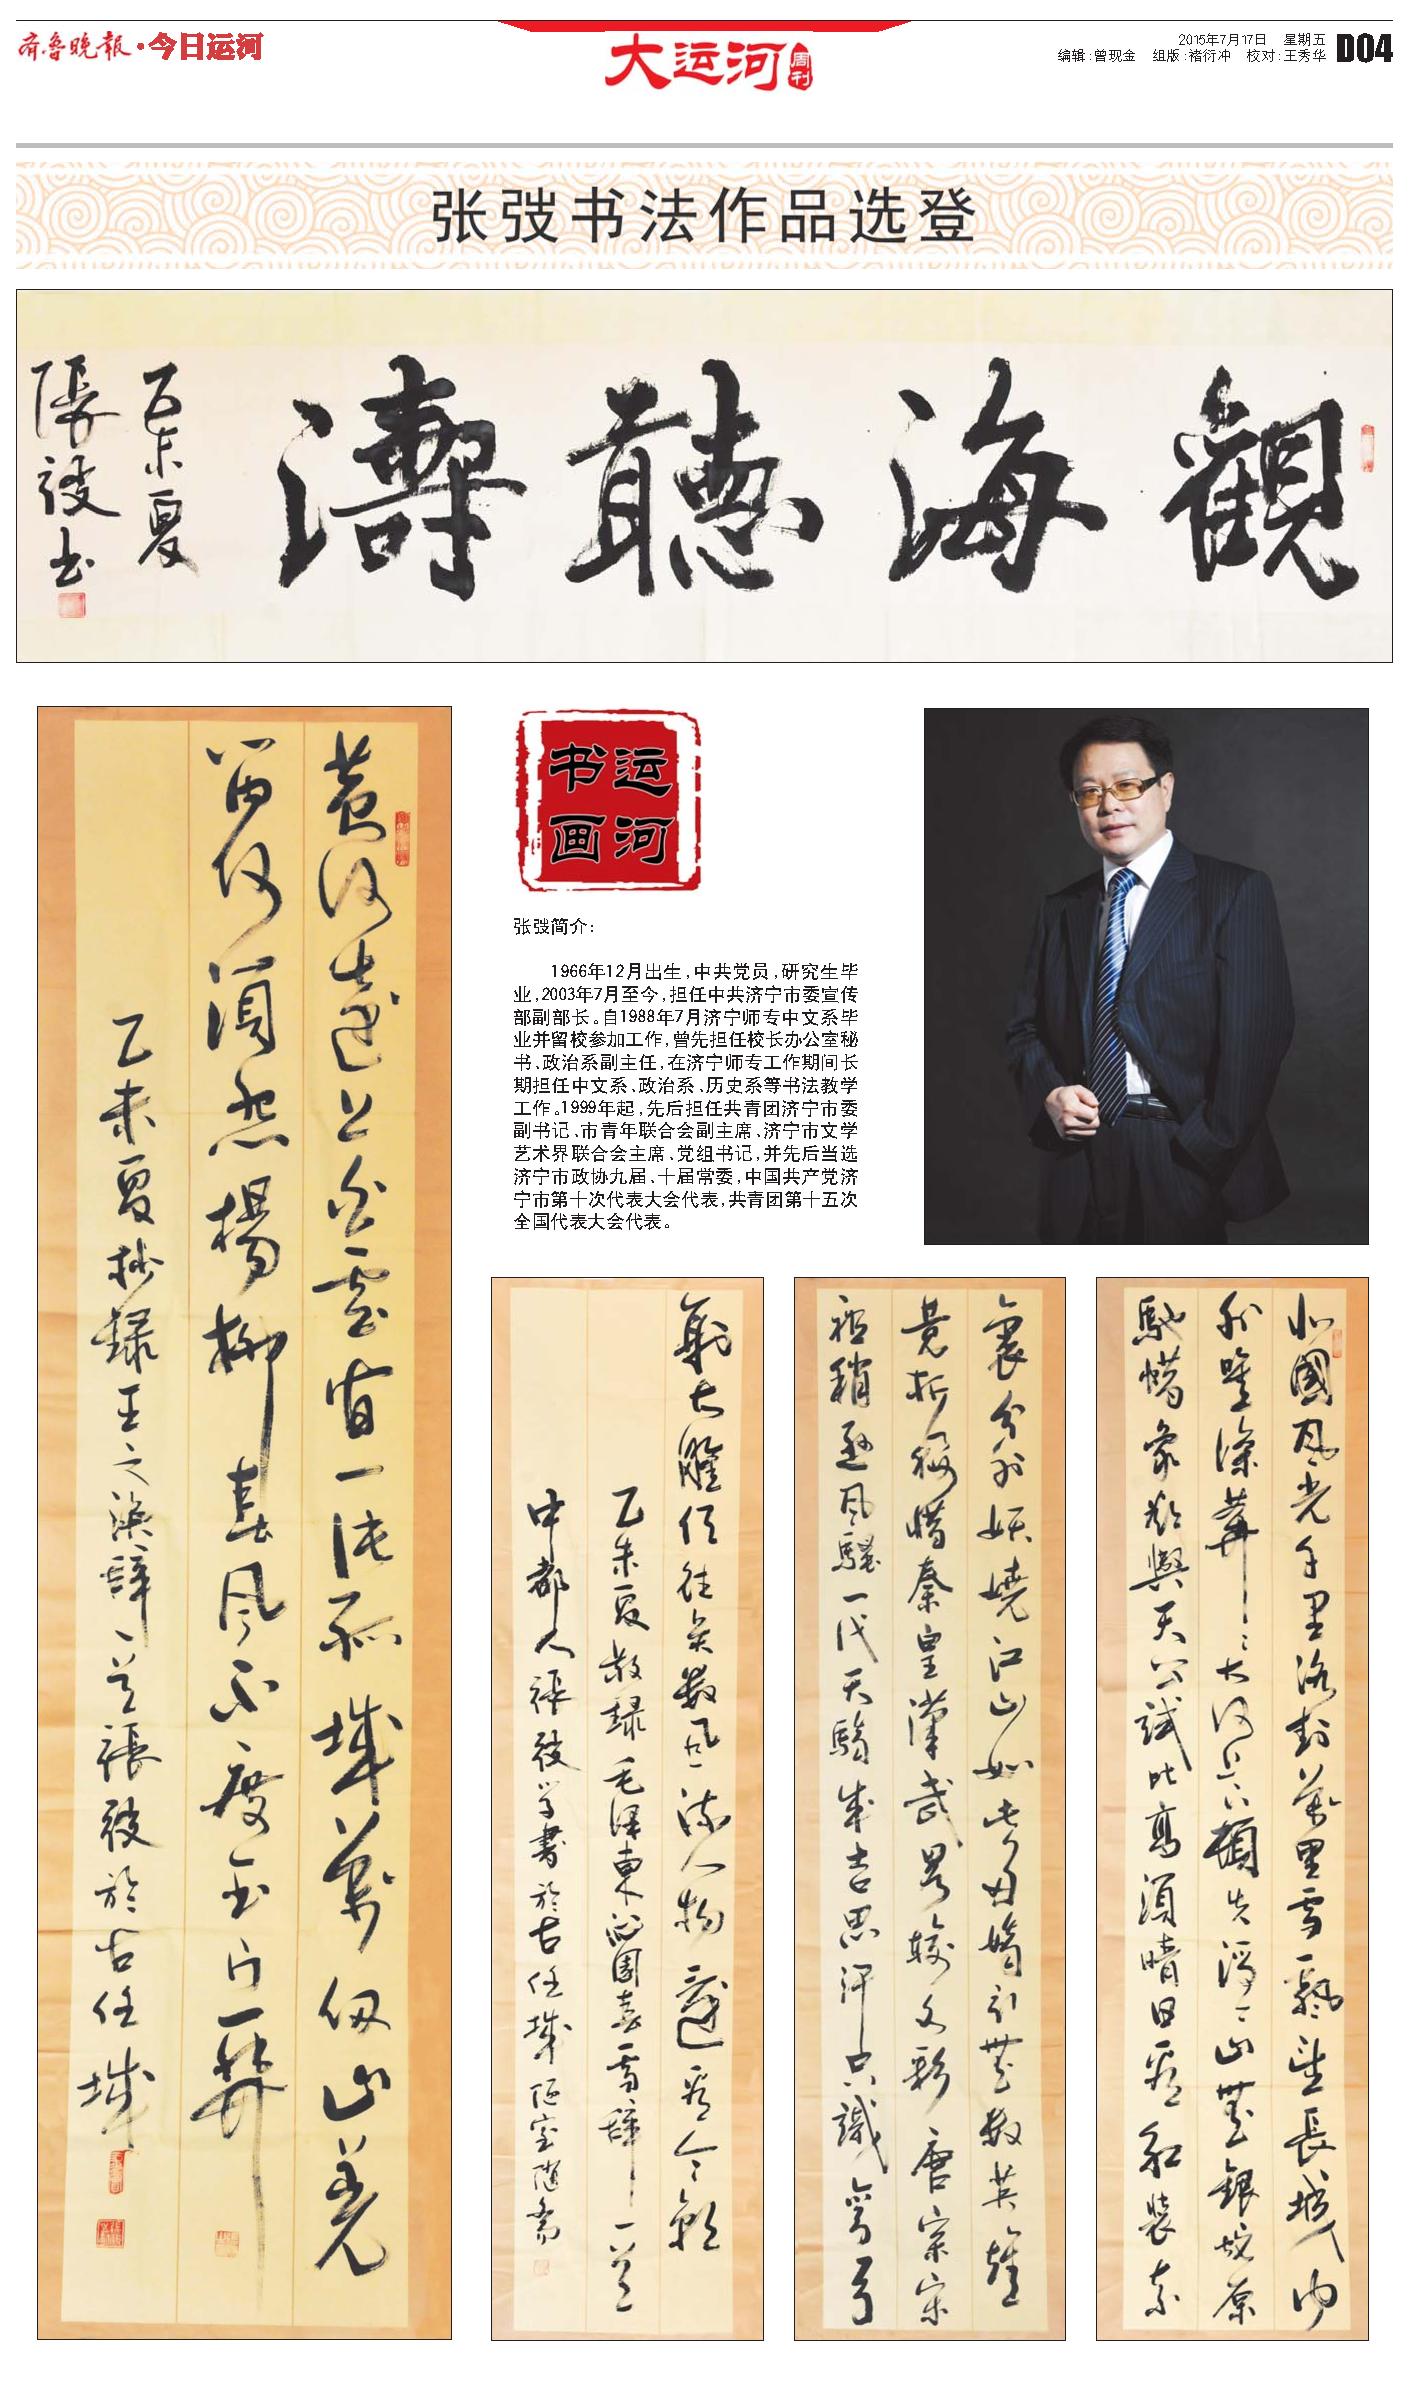 齐鲁晚报·今日运河
大运河周刊
2015年7月17日 星期五
编辑:曾现金 组版:褚衍冲 校对:王秀华
D04
张弢书法作品选登
觀海聽濤
乙未夏
張弢书
运河
书画
张弢简介:
1966年12月出生,中共党员,研究生毕
业,2003年7月至今,担任中共济宁市委宣传
部副部长。自1988年7月济宁师专中文系毕
业并留校参加工作,曾先担任校长办公室秘
书、政治系副主任,在济宁师专工作期间长
期担任中文系、政治系、历史系等书法教学
工作。1999年起,先后担任共青团济宁市委
副书记、市青年联合会副主席、济宁市文学
艺术界联合会主席、党组书记,并先后当选
济宁市政协九届、十届常委,中国共产党济
宁市第十次代表大会代表,共青团第十五次
全国代表大会代表。
黄河遠上白雲间一片孤城萬仞山羌
笛何須怨楊柳春風不度玉门關
乙未夏抄録王之渙辞一首張弢於古任城
北國風光千里冰封萬里雪飄望長城内
外唯餘莽莽大河上下頓失滔滔山舞銀蛇原
馳蜡象欲與天公試比高須晴日看紅裝素
裹分外妖嬈江山如此多嬌引無數英雄
竟折腰惜秦皇漢武略輸文彩唐宗宋
祖稍遜風騷一代天驕成吉思汗只識彎弓
射大雕俱往矣數風流人物還看今朝
乙未夏敬録毛澤東沁園春雪辞一首
中都人張弢学書於古任城陋室随斋